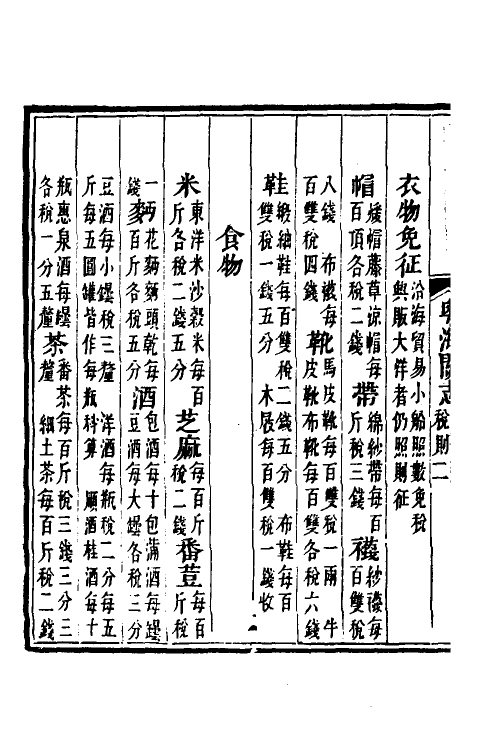 粤海關志 稅則二
衣物免征
沿海貿易小船照數免稅
與販大洋者仍照則征
帽
煖帽藤草凉帽每
百頂各稅二錢
帶
綿紗帶每百
斤稅三錢
襪
紗襪每
百雙稅
八錢 布襪每
百雙稅四錢
靴
馬皮靴每百雙稅一兩 牛
皮靴布靴每百雙各稅六錢
鞋
緞紬鞋每百雙稅二錢五分 布鞋每百
雙稅一錢五分 木屐每百雙稅一錢收
食物
米
東洋米沙穀米每百
斤各稅二錢五分
芝麻
每百斤
稅二錢
番荳
每百
斤稅
一
錢
麥
花麵麵頭乾每
百斤各稅五分
酒
包酒每十包滿酒每罎
豆酒每大罎各稅三分
豆酒每小罎稅三釐 洋酒每瓶稅二分每五
斤每五圓罐皆作每瓶科算 順酒桂酒每十
瓶惠泉酒每罎
各稅一分五釐
茶
番茶每百斤稅三錢三分三
釐 細土茶每百斤稅二錢